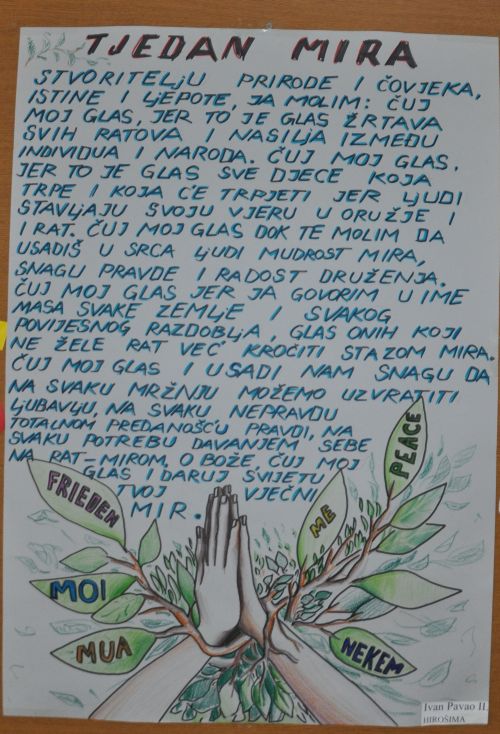 TJEDAN MIRA
STVORITELJU PRIRODE I ČOVJEKA,
ISTINE I LJEPOTE, JA MOLIM: ČUJ
MOJ GLAS, JER TO JE GLAS ŽRTAVA
SVIH RATOVA I NASILJA IZMEĐU
INDIVIDUA I NARODA. ČUJ MOJ GLAS,
JER TO JE GLAS SVE DJECE KOJA
TRPE I KOJA ĆE TRPJETI JER LJUDI
STAVLJAJU SVOJU VJERU U ORUŽJE I
I RAT. ČUJ MOJ GLAS DOK TE MOLIM DA
USADIŠ U SRCA LJUDI MUDROST MIRA,
SNAGU PRAVDE I RADOST DRUŽENJA.
ČUJ MOJ GLAS JER JA GOVORIM U IME
MASA SVAKE ZEMLJE I SVAKOG
POVIJESNOG RAZDOBLJA, GLAS ONIH KOJI
NE ŽELE RAT VEĆ KROČITI STAZOM MIRA.
ČUJ MOJ GLAS I USADI NAM SNAGU DA
NA SVAKU MRŽNJU MOŽEMO UZVRATITI
LJUBAVLJU, NA SVAKU NEPRAVDU
TOTALNOM PREDANOŠĆU PRAVDI, NA
SVAKU POTREBU DAVANJEM SEBE
NA RAT-MIROM. O BOŽE, ČUJ MOJ
GLAS I DARUJ SVIJETU
TVOJ VJEČNI
MIR.
PEACE
FRIEDEN
ME
MOI
MUA
NEKEM
Ivan Pavao II.
HIROŠIMA